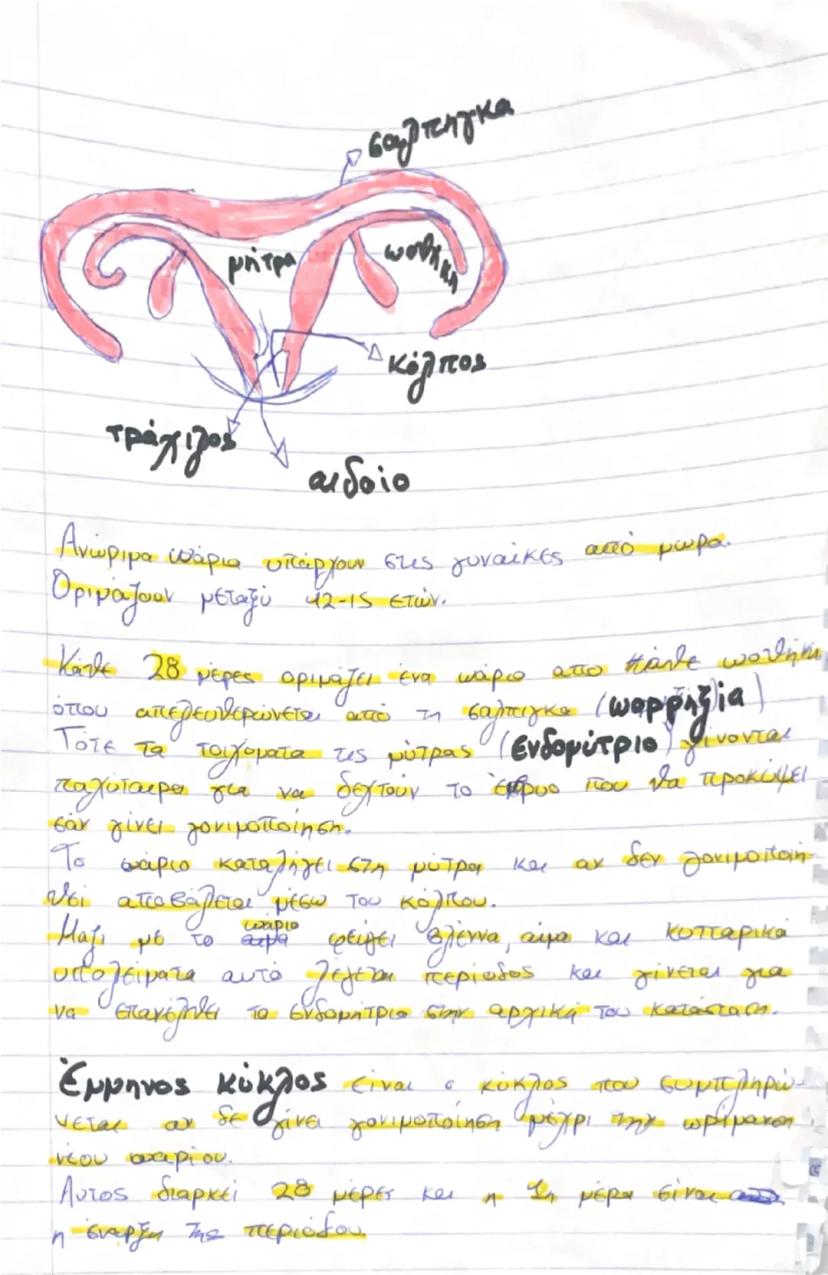 σαλπιγκα
μήτρα
ωοθήκη
κόλπος
τράχιλος
αιδοίο
Ανώριμα ωάρια υπάρχουν στις γυναίκες από μωρα.
Οριμάζουν μεταξύ 12-15 ετών.
Κάθε 28 μέρες οριμάζει ένα ωάριο απο κάθε ωοθήκη
όπου απελευθερώνεται από τη σαλπιγκα (ωορρηξία)
Τότε τα τοιχοματα της μύτρας (ενδομύτριο) γίνονται
παχύταιρα για να δεχτούν το έμβρυο που θα προκύψει
εάν γίνει γονιμοποίηση.
Το ωάριο καταλήγει στη μύτρα και αν δεν γονιμοποιη-
θεί αποβάλεται μέσω του κόλπου.
Μαζι με το ωάριο φεύγει βλέννα, αίμα και κυτταρικά
υπολείματα αυτό λέγεται περίοδος και γίνεται για
να επανέλθει το ενδομήτριο στην αρχική του κατάσταση.
Έμμηνος κύκλος είναι ο κύκλος που συμπληρώ-
νεται αν δε γίνει γονιμοποίηση μέχρι την ωρίμανση
νέου ωαρίου.
Αυτος διαρκεί 28 μέρες και η 1η μέρα είναι
η έναρξη της περιόδου